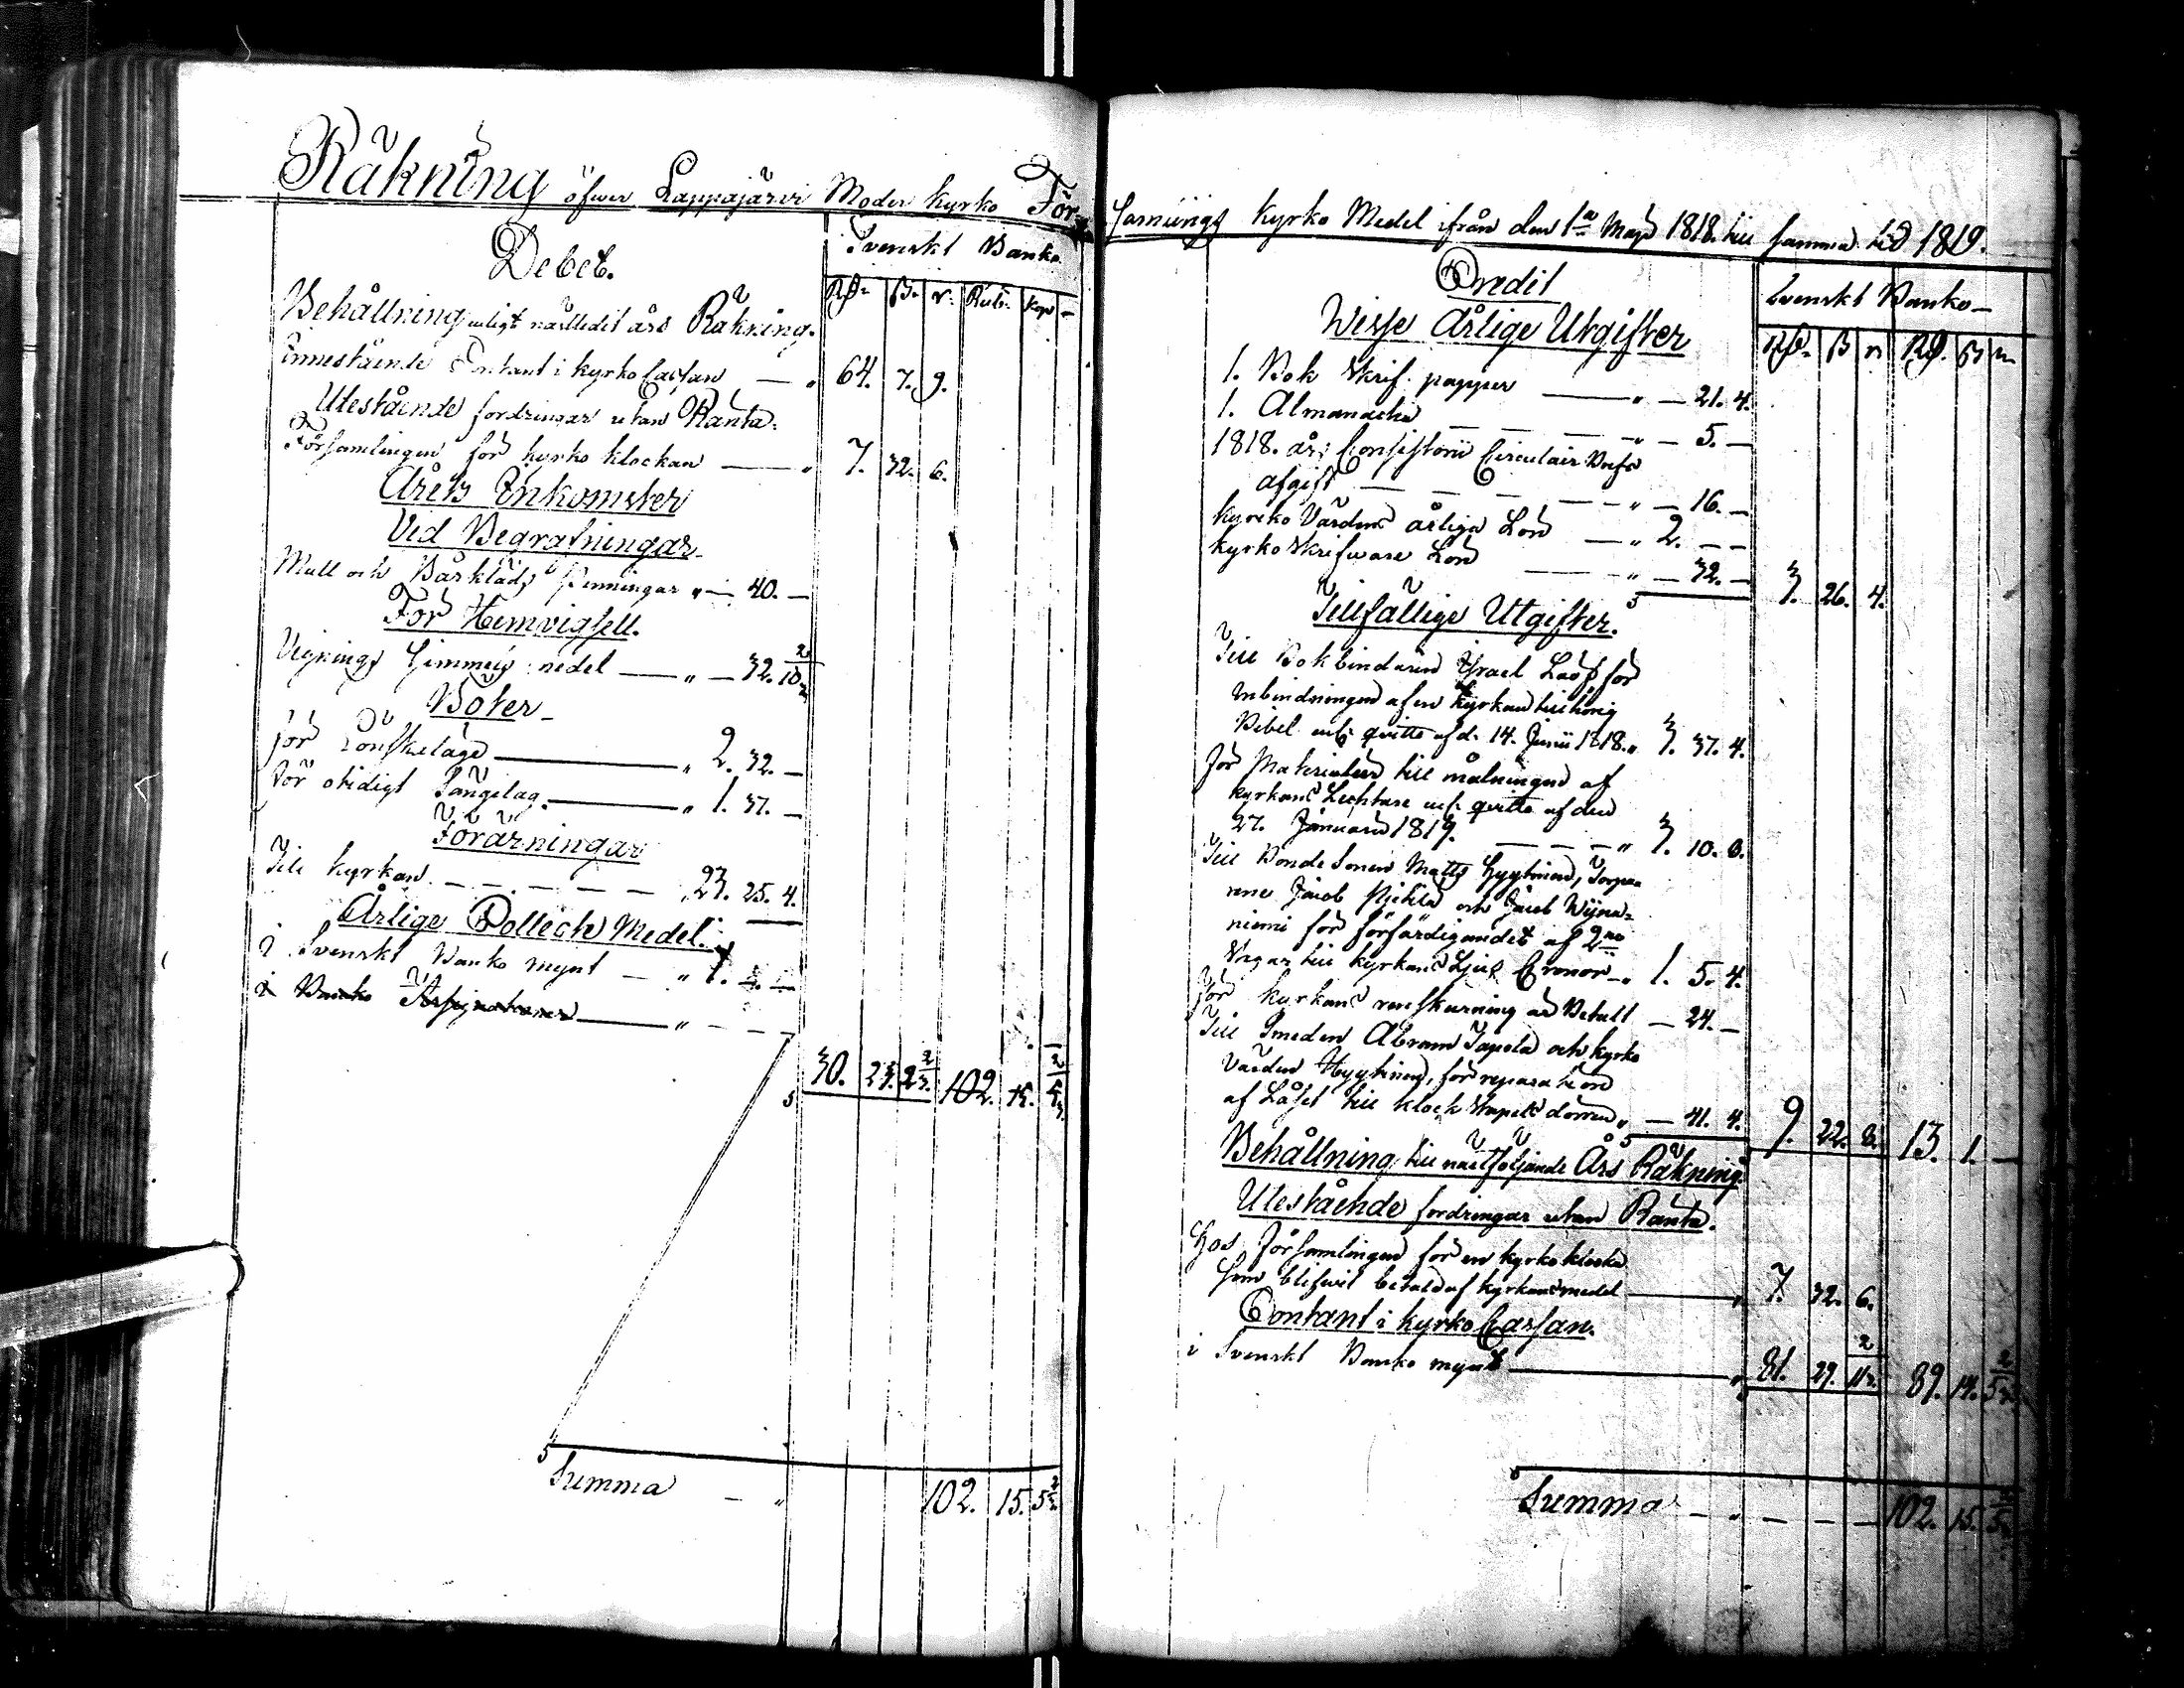 Räkning öfwer Lappajärvi Moder Kyrko För-
Debet.
Svenskt Banko
Rd. ß. r. Rub. Kop
Behållning enligt nästledit års Räkning.
Innestående Contant i Kyrko Cassan — " 64. 7. 9.
Utestående fordringar utan Ränta.
Församlingen för kyrko klockan — " 7. 32. 6.
Årets Inkomster
Vid Begrafningar
Mull och Bårkläds Penningar " — 40. —
För Hemvigsell.
Vignings — " — 32. 10 2/3
Böter
för Lönskeläge — " 2. 32. —
för otidigt Sängelag. — " 1. 37. —
Förärningar
Till kyrkan. — — — — — 23. 25. 4.
Årlige Collect Medel.
I Svenskt Banko mynt — " 1. — —
i Banko Assignationer — " — — —
30. 23. 2 2/3. 102. 15. 5 2/3
Summa — " 102. 15. 5 2/3
samlings Kyrko Medel ifrån den 1a Maji 1818. till samma tid 1819.
Credit
Svenskt Banko —
Rd. ß r. Rd. ß r.
Wisse Årlige Utgifter
1. Bok Skrif papper — " — 21. 4.
1. Almanacha — — — — " — 5. —
1818. års Consistorii Circulair Brefs
afgift — — — — " — 16. —
Kyrko Värdens årliga Lön — " 2. — —
Kyrko Skrifware Lön — " — 32. — 3. 26. 4.
Tillfällige Utgifter.
Till Bokbindaren Israel Lööf för
inbindningen af en Kyrkan tillhörig
Bibel enl. qvitto af d. 14. Junii 1818. " 3. 37. 4.
För Materialier till målningen af
Kyrkans Lechtare enl. qvitto af den
27. Januarii 1819. — — — " 3. 10. 8.
Till Bonde Sonen Matts Hyytinen, Torpa-
rene Jacob och Jacob
niemi för förfärdigandet af 2ne
till kyrkans Ljus Cronor — " 1. 5. 4.
För Kyrkans renskurning är Betalt — 24. —
Till Smeden Abram Tapola och Kyrko
Värden Hyytinen, för reparation
af Låset till Klock Stapels dörren " — 41. 4. 9. 22. 8. 13. 1. —
Behållning till nästföljande Års Räkning.
Utestående fordringar utan Ränta.
Hos Församlingen för en kyrko klocka
som blifwit betald af kyrkans medel — " 7. 32. 6.
Contant i Kyrko Cassan.
i Svenskt Banko mynt — " 81. 29. 11 2/3. 89. 14. 5 2/3
Summa — " — — — 102. 15. 5 2/3